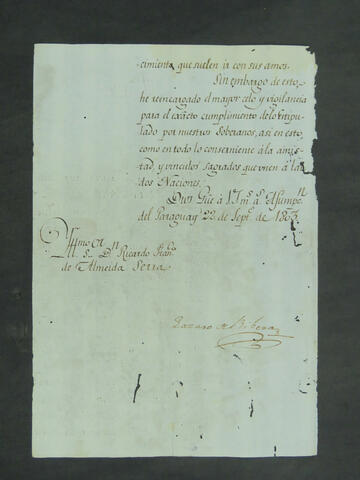 cimiento que suelen ir con sus amos.
Sin embargo de esto,
he reencargado el mayor celo y vigilancia
para el exácto cumplimiento de lo estipu-
lado por nuestros Soberanos, asi en esto,
como en todo lo conserniente á la amis-
tad, y vinculos sagrados que unen á las
dos Naciones.
Dios gue á V.S. m.s a.s Asumpn.
del Paraguay 22 de Sept.e de 1803.
S.r D.n Ricardo Fran.co
de Almeida Serra
Lazaro de Ribera